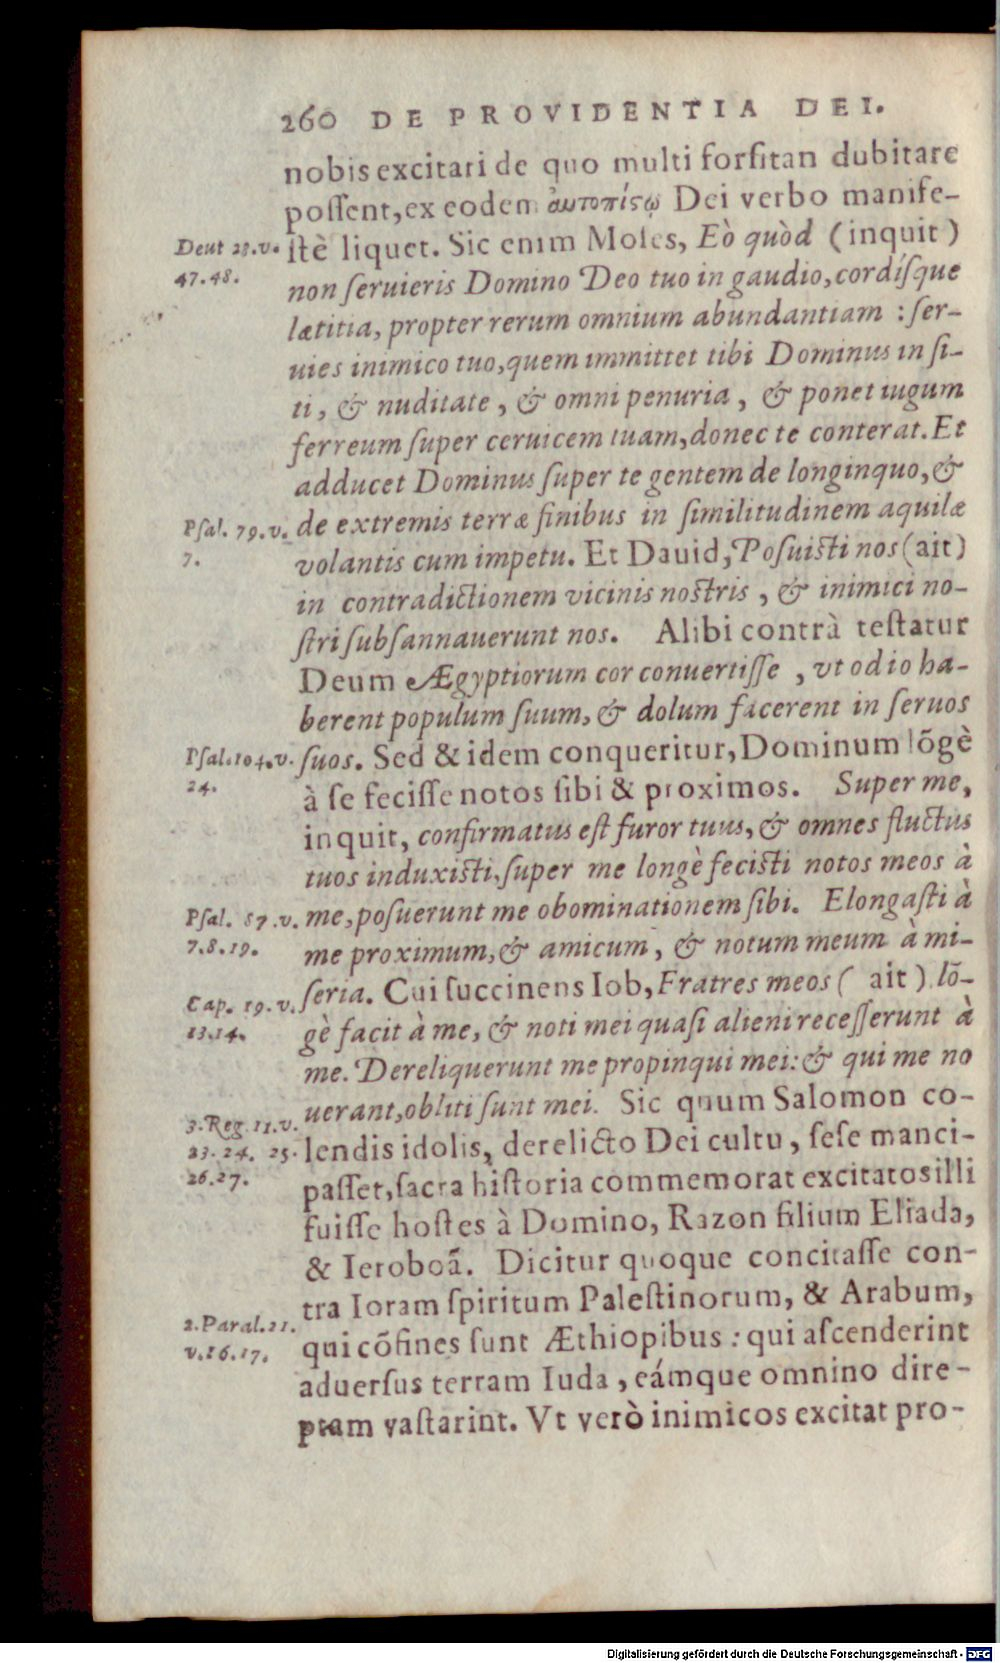 260 DE PROVIDENTIA DEI.
nobis excitari de quo multi forſitan dubitare
poſſent, ex eodem ἀυτοπίϛῳ Dei verbo manife-
Deut 28.v.
47.48.
ſtè liquet. Sic enim Moſes, Eò quòd (inquit)
non ſeruieris Domino Deo tuo in gaudio, cordíſque
lætitia, propter rerum omnium abundantiam : ſer-
uies inimico tuo, quem immittet tibi Dominus in ſi-
ti, & nuditate, & omni penuria, & ponet iugum
ferreum ſuper ceruicem tuam, donec te conterat. Et
adducet Dominus ſuper te gentem de longinquo, &
de extremis terræ finibus in ſimilitudinem aquilæ
Pſal. 79.v.
7.
volantis cum impetu. Et Dauid, Poſuiſti nos (ait)
in contradictionem vicinis noſtris, & inimici no-
ſtri ſubſannauerunt nos. Alibi contrà teſtatur
Deum Ægyptiorum cor conuertiſſe, vt odio ha-
berent populum ſuum, & dolum facerent in ſeruos
Pſal.104.v.
24.
ſuos. Sed & idem conqueritur, Dominum lõgè
à ſe feciſſe notos ſibi & proximos. Super me,
inquit, confirmatus eſt furor tuus, & omnes fluctus
tuos induxiſti, ſuper me longè feciſti notos meos à
Pſal. 87.v.
7.8.19.
me, poſuerunt me obominationem ſibi. Elongaſti à
me proximum, & amicum, & notum meum à mi-
ſeria. Cui ſuccinens Iob, Fratres meos ( ait ) lõ-
Cap. 19.v.
13.14.
gè facit à me, & noti mei quaſi alieni receſſerunt à
me. Dereliquerunt me propinqui mei: & qui me no
uerant, obliti ſunt mei. Sic quum Salomon co-
3.Reg.11.v.
23.24. 25.
26.27.
lendis idolis, derelicto Dei cultu, ſeſe manci-
paſſet, ſacra hiſtoria commemorat excitatos illi
fuiſſe hoſtes à Domino, Razon filium Eliada,
& Ieroboã. Dicitur quoque concitaſſe con-
tra Ioram ſpiritum Paleſtinorum, & Arabum,
2.Paral.21.
v.16.17.
qui cõfines ſunt Æthiopibus : qui aſcenderint
aduerſus terram Iuda, eámque omnino dire-
ptam vaſtarint. Vt verò inimicos excitat pro-
Digitalisierung gefördert durch die Deutsche Forschungsgemeinschaft - DFG